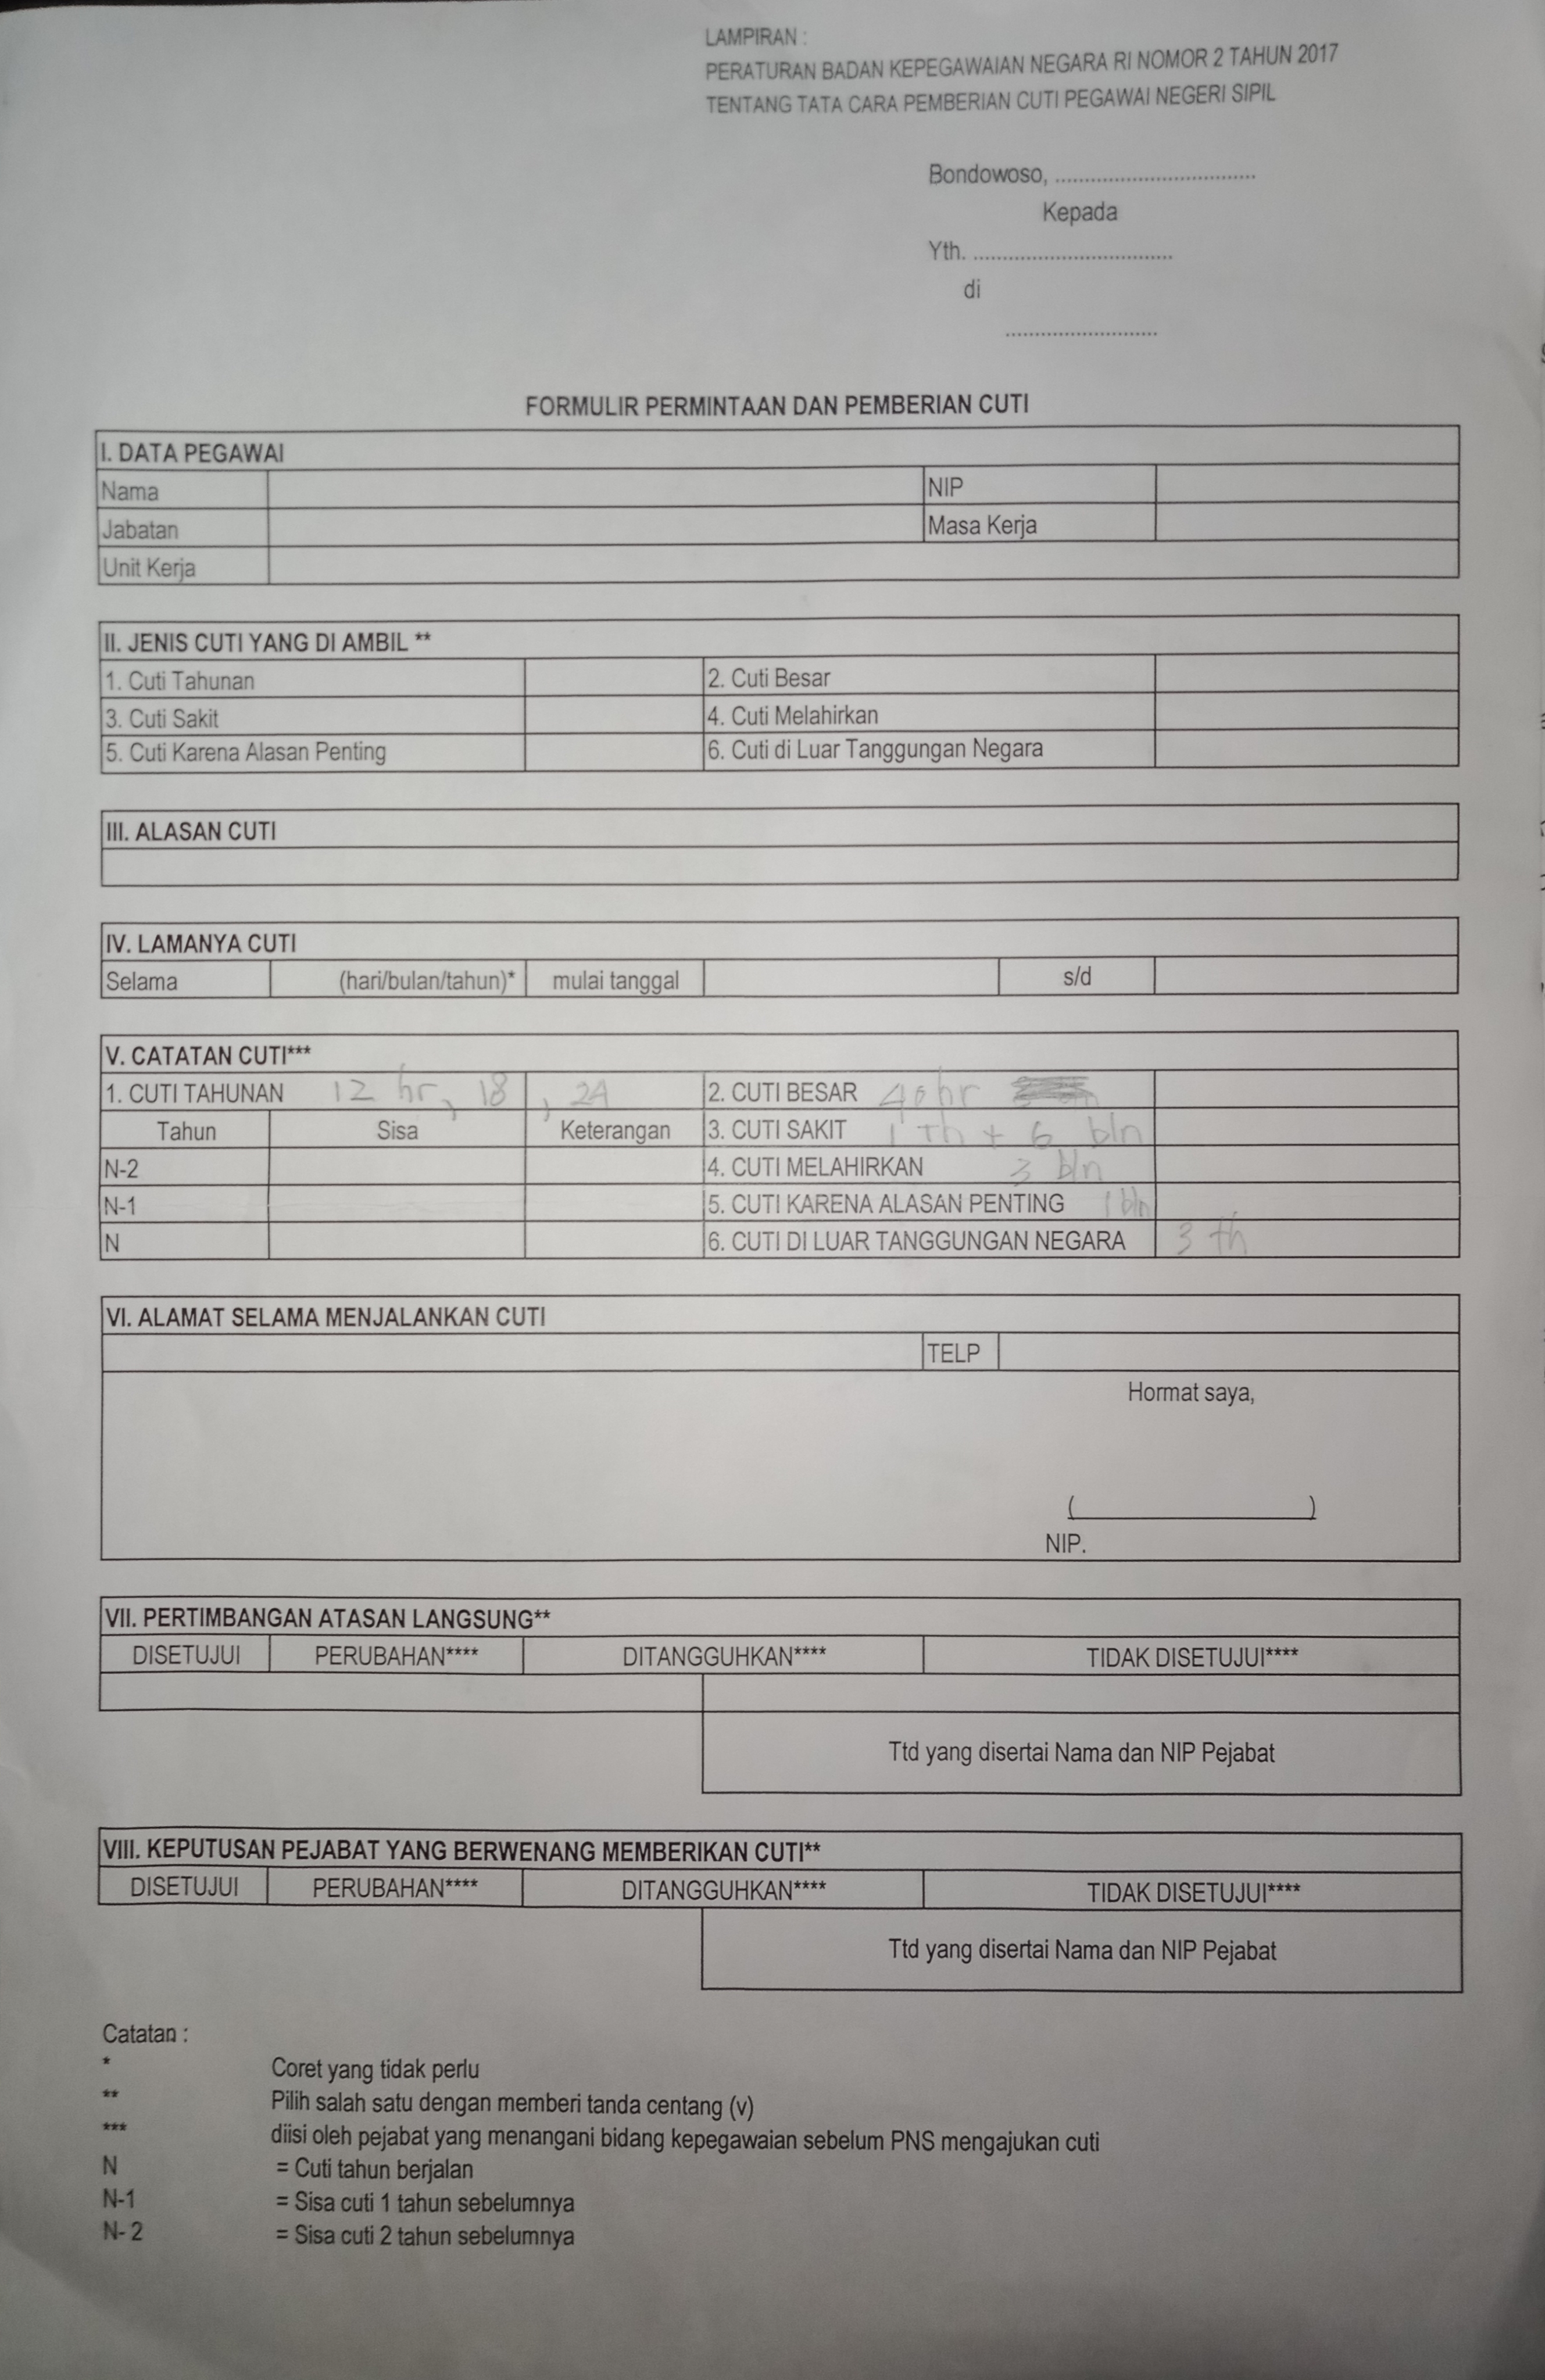 LAMPIRAN :
PERATURAN BADAN KEPEGAWAIAN NEGARA RI NOMOR 2 TAHUN 2017
TENTANG TATA CARA PEMBERIAN CUTI PEGAWAI NEGERI SIPIL
Bondowoso, ..................................
Kepada
Yth. ..................................
di
..........................
FORMULIR PERMINTAAN DAN PEMBERIAN CUTI
I. DATA PEGAWAI
Nama NIP
Jabatan Masa Kerja
Unit Kerja
II. JENIS CUTI YANG DI AMBIL **
1. Cuti Tahunan 2. Cuti Besar
3. Cuti Sakit 4. Cuti Melahirkan
5. Cuti Karena Alasan Penting 6. Cuti di Luar Tanggungan Negara
III. ALASAN CUTI
IV. LAMANYA CUTI
Selama (hari/bulan/tahun)* mulai tanggal s/d
V. CATATAN CUTI***
1. CUTI TAHUNAN 12 hr, 18, 24 2. CUTI BESAR 40 hr
Tahun Sisa Keterangan 3. CUTI SAKIT 1 th + 6 bln
N-2 4. CUTI MELAHIRKAN 3 bln
N-1 5. CUTI KARENA ALASAN PENTING 1 bln
N 6. CUTI DI LUAR TANGGUNGAN NEGARA 3 th
VI. ALAMAT SELAMA MENJALANKAN CUTI
TELP
Hormat saya,
(                    )
NIP.
VII. PERTIMBANGAN ATASAN LANGSUNG**
DISETUJUI PERUBAHAN**** DITANGGUHKAN**** TIDAK DISETUJUI****
Ttd yang disertai Nama dan NIP Pejabat
VIII. KEPUTUSAN PEJABAT YANG BERWENANG MEMBERIKAN CUTI**
DISETUJUI PERUBAHAN**** DITANGGUHKAN**** TIDAK DISETUJUI****
Ttd yang disertai Nama dan NIP Pejabat
Catatan :
* Coret yang tidak perlu
** Pilih salah satu dengan memberi tanda centang (v)
*** diisi oleh pejabat yang menangani bidang kepegawaian sebelum PNS mengajukan cuti
N = Cuti tahun berjalan
N-1 = Sisa cuti 1 tahun sebelumnya
N- 2 = Sisa cuti 2 tahun sebelumnya